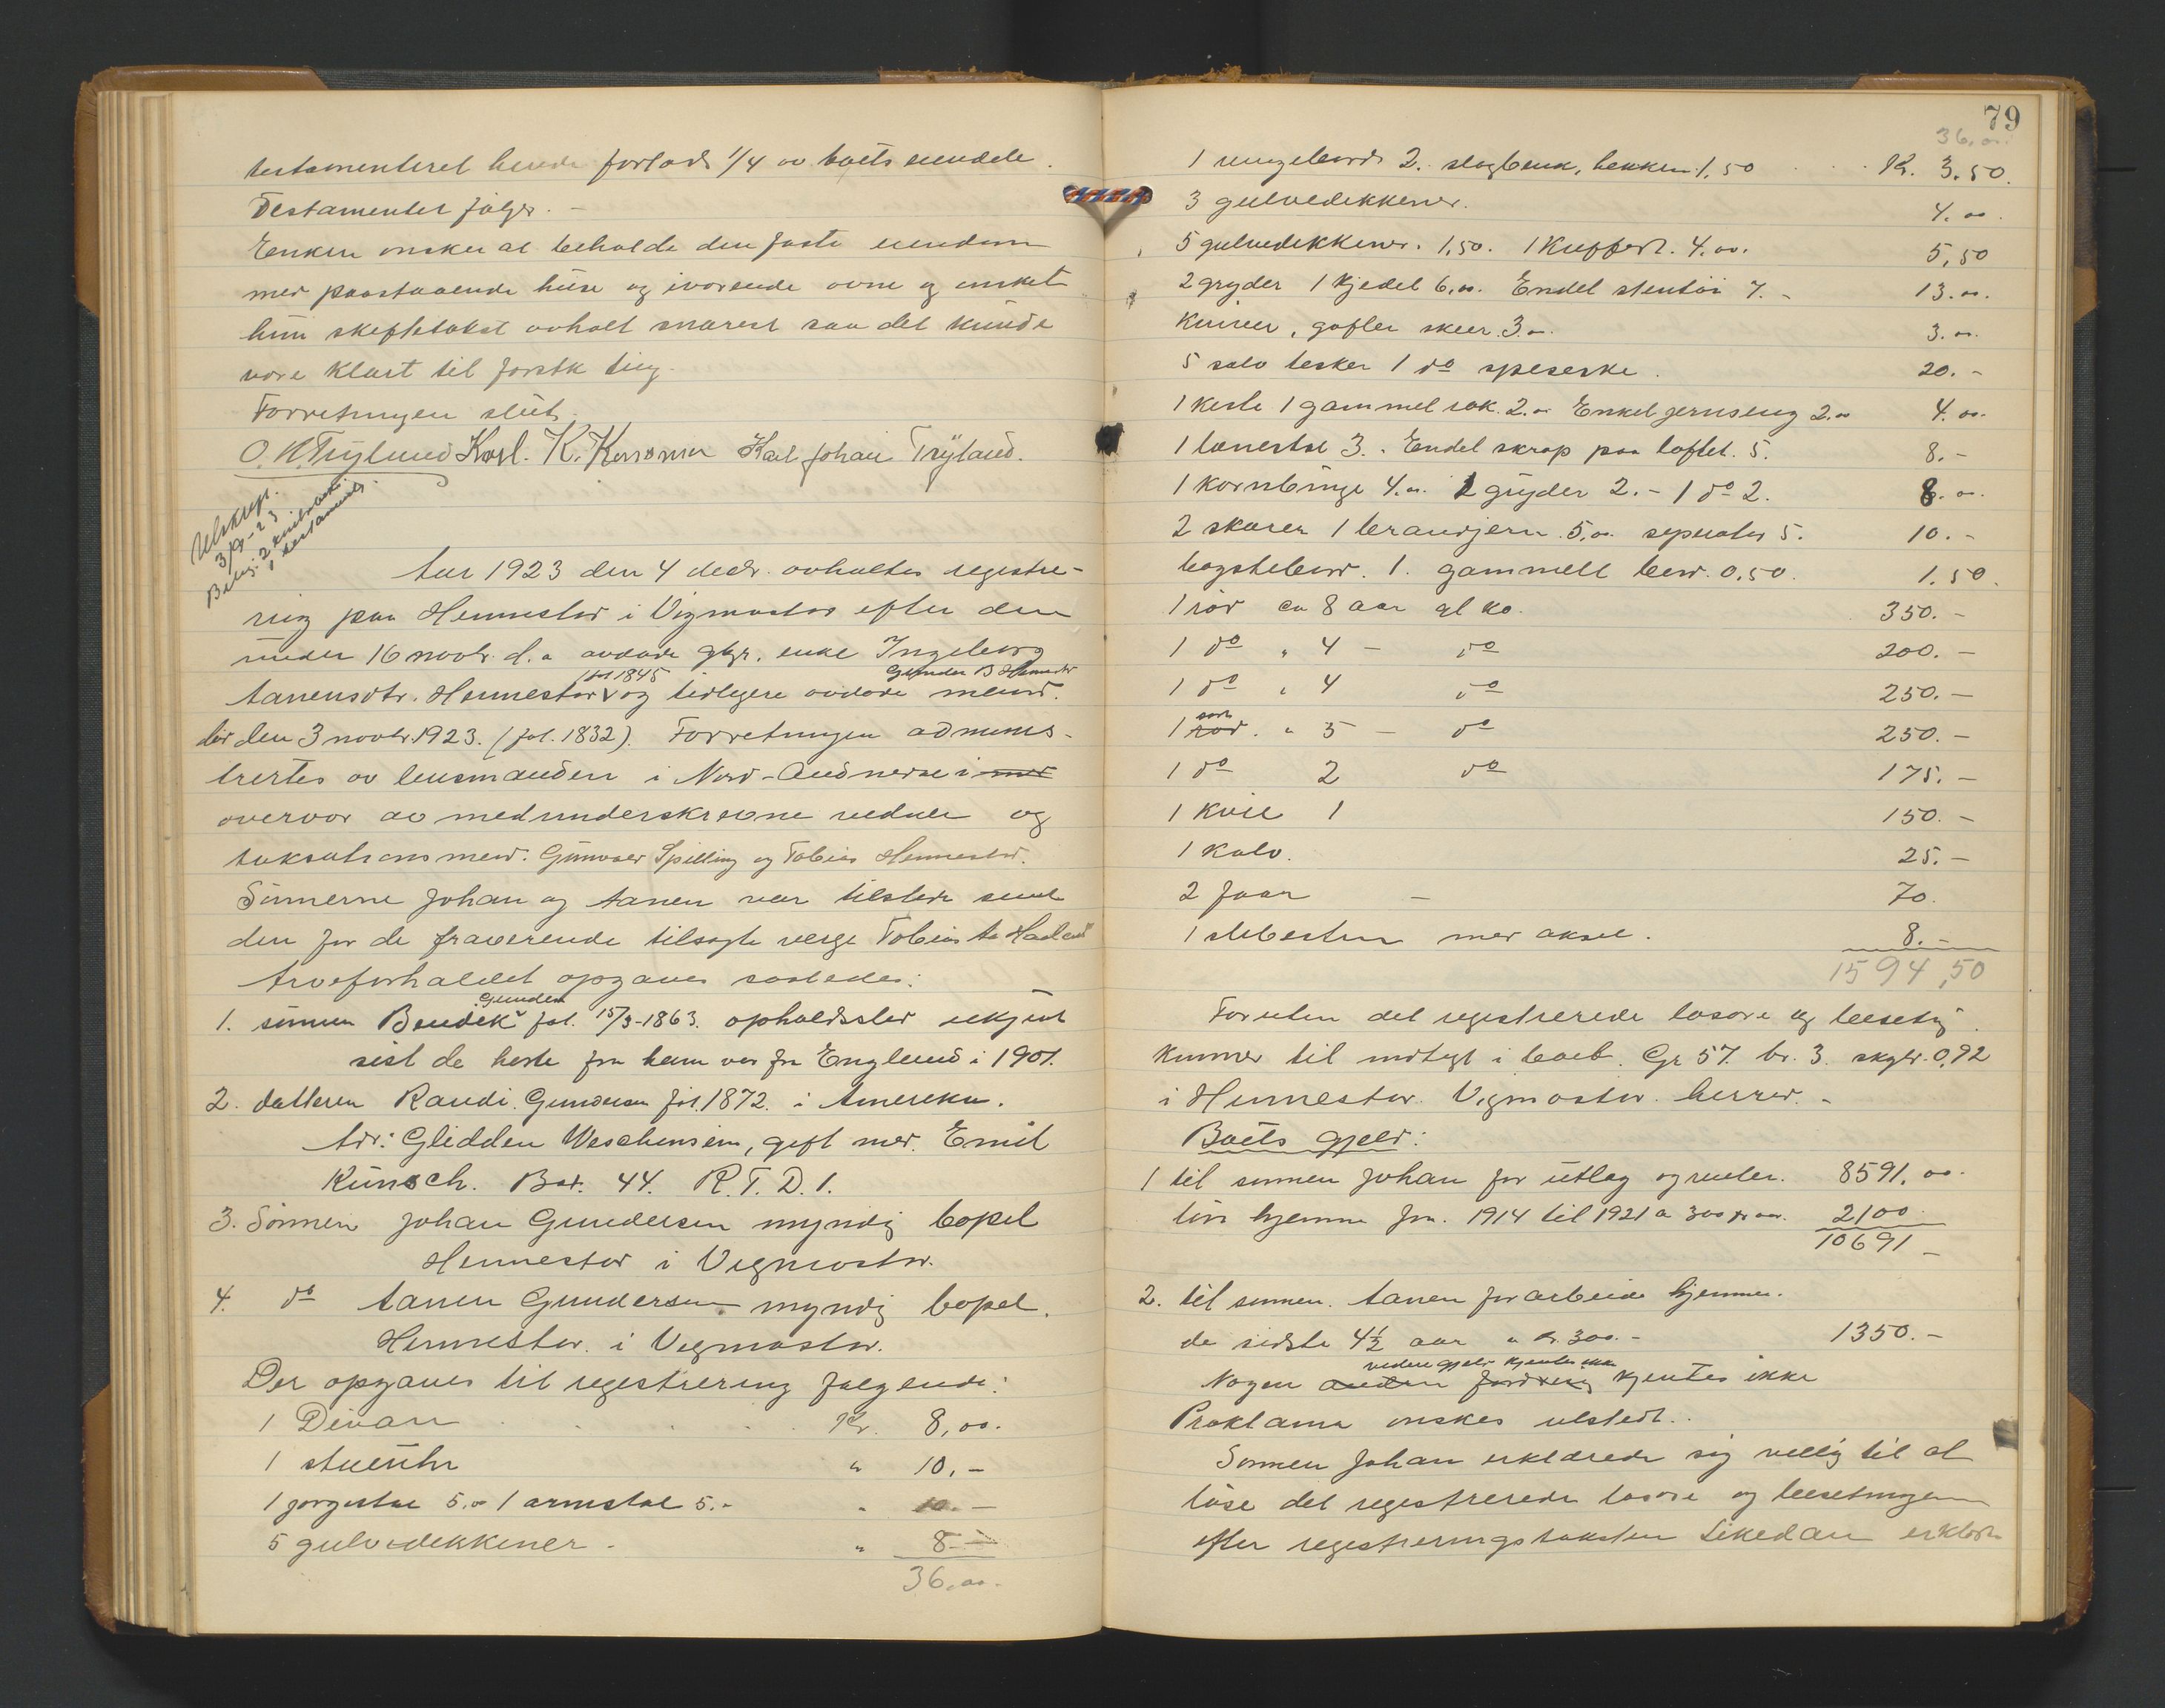 testamenteret hende forlods 1/4 av boets eiendele.
Testamentet følger. –
Enken ønsker at beholde den faste eiendom
med paastaaende huse og iværende ovne og ønsket
hun skiftetakst avholt snarest saa det kunde
være klart til førstk ting.
Forretningen slut.
O. K. Trylund Karl. K. Karl Johan Tryland.
Utskrift
3/9-23
Bilag: 2
1 testament.
Aar 1923 den 4 decbr. avholtes registre-
ring paa Hennestad i Vigmostad efter den
under 16 novbr. d.a avdøde gbr. enke Ingeborg
fød 1845 Gunder B Hennestad
Aanensdtr. Hennestad og tidligere avdøde mand.
død den 3 novbr. 1923. (føt. 1832). Forretningen adminis-
trertes av lensmanden i Nord-Audnedal i med
overvær av medunderskrevne vidner og
taksationsmend. Gunvald Spilling og Tobias Hennestad.
Sønnerne Johan og Aanen var tilstede samt
den for de fraværende tilsagte verge Tobias A. Haaland
Arveforholdet opgaves saaledes:
Gunders
1. sønnen Bendik føt. 15/3-1863. opholdssted ukjent
sist de hørte fra ham var fra England i 1901.
2. datteren Randi. Gundersen føt. 1872. i Amerika.
Adr: Glidden Weschensin, gift med. Emil
Künsch. Box. 44. R. T. D. 1.
3. Sønnen Johan Gundersen myndig bopel
Hennestad i Vigmostad.
4. do Aanen Gundersen myndig bopel.
Hennestad. i Vigmostad.
Der opgaves til registrering følgende:
1 Divan Kr. 8,00.
1 stueuhr " 10,–
1 gyngestol 5.00 1 armstol 5.– " 10.–
5 gulvdekkener – " 8–
36,00.
79
36,00.
1 vingebord 2. slagbenk, bekken 1,50 Kr. 3,50.
3 gulvdekkener. 4.00.
5 gulvdekkener. 1,50. 1 Kuffert. 4.00. 5,50
2 gryder 1 kjedel 6,00. Endel stentøi 7.– 13.00.
Kniver, gafler skeer. 3.00. 3.00.
5 sølv tesker 1 do spiseske. 20.–
1 kiste 1 gammel rok. 2.00 Enkel jernseng 2.00 4.00.
1 lænestol 3. Endel skrap paa loftet. 5. 8.–
1 kornbinge 4.00. 2 gryder 2.– 1 do 2. 8.00.
2 skaarer 1 brandjern. 5,00. seperator 5. 10.–
bagstebord. 1. gammell bord. 0,50. 1.50.
1 rød ca 8 aar gl ko. 350.–
1 do " 4 – do 200.–
1 do " 4 do 250.–
sort
1 rød. " 5 – do 250.–
1 do 2 do 175.–
1 kvie 1 150.–
1 kalv. 25.–
2 faar – 70.
1 slibesten med aksel. 8.–
1594,50
Foruten det registrerede løsøre og besetng
kommer til indtegt i boet. Gr 57. br. 3. skyld. 0,92
i Hennestad. Vigmostad. herred. –
Boets gjeld:
1 til sønnen Johan for utlæg og renter. 8591.00.
løn hjemme fra. 1914 til 1921 a 300 pr aar. 2100
10691 –
2. til sønnen. Aanen for arbeide hjemme.
de sidste 4½ aar a kr. 300.– 1350.–
videre gjeld kjentes ikke
Nogen anden fordring kjentes ikke
Proklama ønskes utstedt.
Sønnen Johan erklærede sig villig til at
løse det registrerede løsøre og besetningen
efter registreringstaksten Likedan erklærte